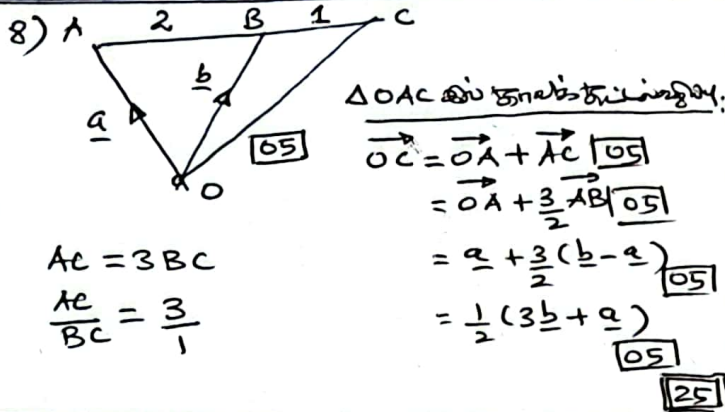 8) A 2 B 1 C
a b
05
O
AC = 3BC
AC/BC = 3/1
ΔOAC இல்
OC = OA + AC 05
= OA + 3/2 AB 05
= a + 3/2 (b - a) 05
= 1/2 (3b + a)
05
25